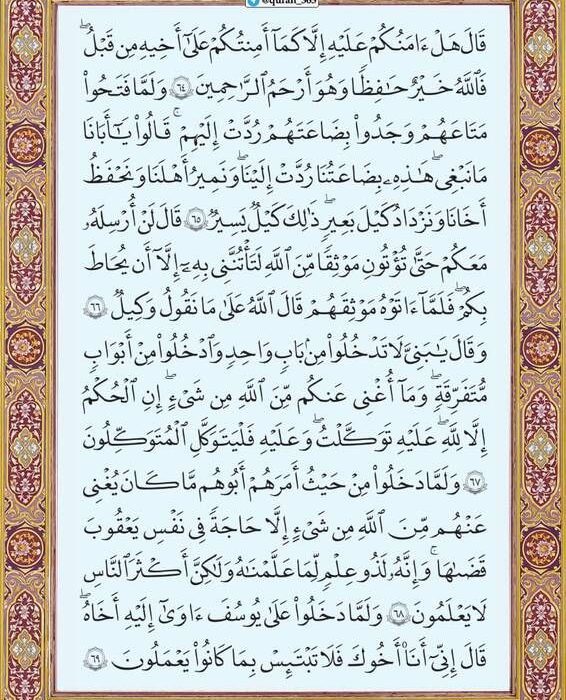 @quran_365
قَالَ هَلْ ءَامَنُكُمْ عَلَيْهِ إِلَّا كَمَآ أَمِنتُكُمْ عَلَىٰٓ أَخِيهِ مِن قَبْلُ ۖ
فَٱللَّهُ خَيْرٌ حَـٰفِظًا وَهُوَ أَرْحَمُ ٱلرَّٰحِمِينَ ٦٤ وَلَمَّا فَتَحُوا۟
مَتَـٰعَهُمْ وَجَدُوا۟ بِضَـٰعَتَهُمْ رُدَّتْ إِلَيْهِمْ ۖ قَالُوا۟ يَـٰٓأَبَانَا
مَا نَبْغِى ۖ هَـٰذِهِۦ بِضَـٰعَتُنَا رُدَّتْ إِلَيْنَا ۖ وَنَمِيرُ أَهْلَنَا وَنَحْفَظُ
أَخَانَا وَنَزْدَادُ كَيْلَ بَعِيرٍ ۖ ذَٰلِكَ كَيْلٌ يَسِيرٌ ٦٥ قَالَ لَنْ أُرْسِلَهُۥ
مَعَكُمْ حَتَّىٰ تُؤْتُونِ مَوْثِقًا مِّنَ ٱللَّهِ لَتَأْتُنَّنِى بِهِۦٓ إِلَّآ أَن يُحَاطَ
بِكُمْ ۖ فَلَمَّآ ءَاتَوْهُ مَوْثِقَهُمْ قَالَ ٱللَّهُ عَلَىٰ مَا نَقُولُ وَكِيلٌ ٦٦
وَقَالَ يَـٰبَنِىَّ لَا تَدْخُلُوا۟ مِنۢ بَابٍ وَٰحِدٍ وَٱدْخُلُوا۟ مِنْ أَبْوَٰبٍ
مُّتَفَرِّقَةٍ ۖ وَمَآ أُغْنِى عَنكُم مِّنَ ٱللَّهِ مِن شَىْءٍ ۖ إِنِ ٱلْحُكْمُ
إِلَّا لِلَّهِ ۖ عَلَيْهِ تَوَكَّلْتُ ۖ وَعَلَيْهِ فَلْيَتَوَكَّلِ ٱلْمُتَوَكِّلُونَ
٦٧ وَلَمَّا دَخَلُوا۟ مِنْ حَيْثُ أَمَرَهُمْ أَبُوهُم مَّا كَانَ يُغْنِى
عَنْهُم مِّنَ ٱللَّهِ مِن شَىْءٍ إِلَّا حَاجَةً فِى نَفْسِ يَعْقُوبَ
قَضَىٰهَا ۚ وَإِنَّهُۥ لَذُو عِلْمٍ لِّمَا عَلَّمْنَـٰهُ وَلَـٰكِنَّ أَكْثَرَ ٱلنَّاسِ
لَا يَعْلَمُونَ ٦٨ وَلَمَّا دَخَلُوا۟ عَلَىٰ يُوسُفَ ءَاوَىٰٓ إِلَيْهِ أَخَاهُ ۖ
قَالَ إِنِّىٓ أَنَا۠ أَخُوكَ فَلَا تَبْتَئِسْ بِمَا كَانُوا۟ يَعْمَلُونَ ٦٩